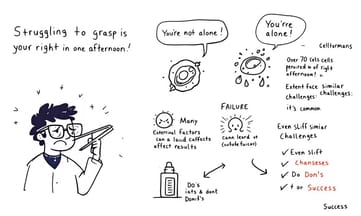 Struggling to grasp is
your right in one afternoon!
You're not alone!
You'rre
alone!
Celltormans
Over 70 Cels cells
percived n of right
afternoon!
Extent face similar
challenges: challenges:
it's common
Many
External factors
can a loid caffects
affect results
FAILURE
Cann leard or
Even sliff simiar
Challenges
✓ Even slift
✓ Chanseses
✓ Do Don's
✓ t or Success
Do's
ists a dont
Domif's
Success